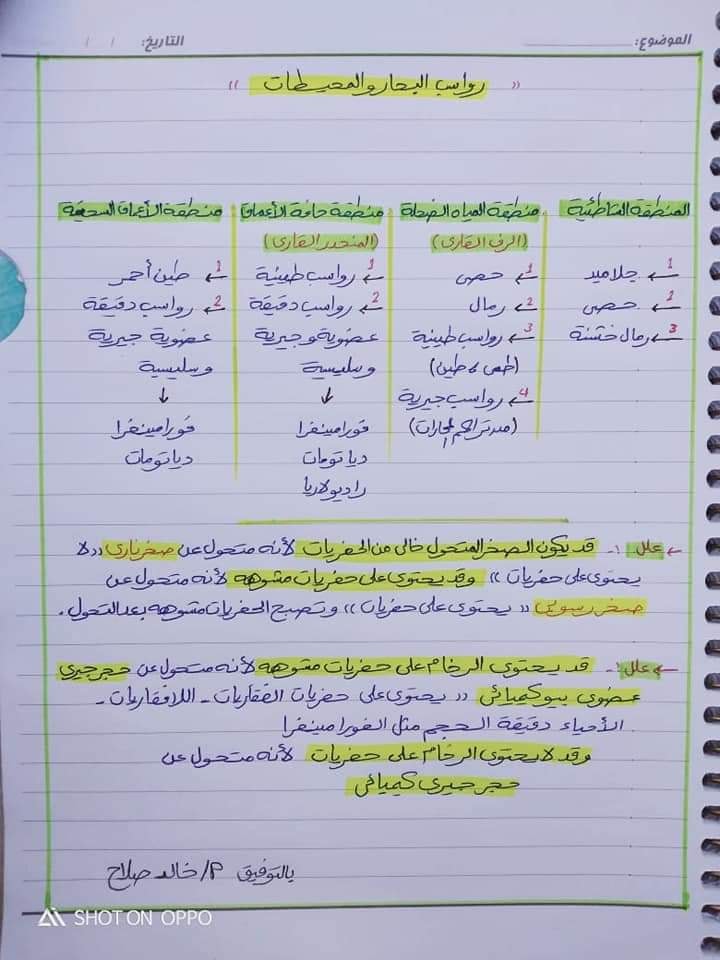 الموضوع:
التاريخ: / /
« رواسب البحار والمحيطات »
المنطقة الشاطئية
1 ← جلاميد
2 ← حصى
3 ← رمال خشنة
منطقة المياه الضحلة
(الرف القارى)
1 ← حصى
2 ← رمال
3 ← رواسب طينية
(طمى، طين)
4 ← رواسب جيرية
(من تراكم المحارات)
منطقة حافة الأعماق
(المنحدر القارى)
1 ← رواسب طينية
2 ← رواسب دقيقة
عضوية وجيرية
وسليسية
↓
فورامينفرا
دياتومات
راديولاريا
منطقة الأعماق السحيقة
1 ← طين أحمر
2 ← رواسب دقيقة
عضوية جيرية
وسليسية
↓
فورامينفرا
دياتومات
← علل :- قد يكون الصخر المتحول خالى من الحفريات لأنه متحول عن صخر نارى «لا
يحتوى على حفريات» وقد يحتوى على حفريات مشوهه لأنه متحول عن
صخر رسوبى «يحتوى على حفريات» وتصبح الحفريات مشوهه بعد التحول.
← علل :- قد يحتوى الرخام على حفريات مشوهه لأنه متحول عن حجر جيري
عضوى بيوكيميائى «يحتوى على حفريات الفقاريات - اللافقاريات -
الأحياء دقيقة الحجم مثل الفورامينفرا
وقد لا يحتوى الرخام على حفريات لأنه متحول عن
حجر جيرى كيميائى
بالتوفيق م/ خالد صلاح
SHOT ON OPPO